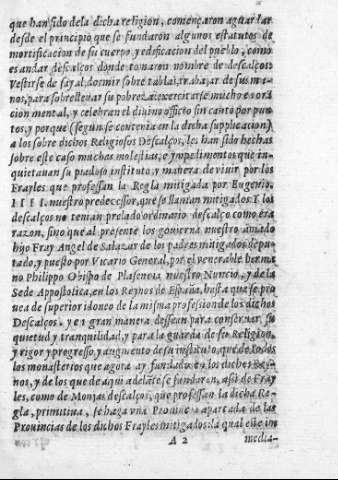 que han sido de la dicha religion, començaron aguardar
desde el principio que se fundaron algunos estatutos de
mortificacion de su cuerpo, y edificacion del pueblo, como
es andar descalços donde tomaron nombre de descalços.
Vestirse de sayal, dormir sobre tablas, trabajar de sus ma-
nos, para sobrellevar su pobreza exercitarse mucho e oora
cion mental, y celebran el divino officio sin canto por pun-
tos, y porque (segun se contenia en la dicha supplicacion)
a los sobre dichos Religiosos Descalços, les han sido hechas
sobre este caso muchas molestias, e impedimentos que in-
quietauan su piadoso instituto, y manera de viuir por los
Frayles que professan la Regla mitigada por Eugenio.
IIII. nuestro predecessor, que se llaman mitigados Y los
descalços no tenian prelado ordinario descalço como era
razon, sino que al presente los gouierna nuestro amado
hijo Fray Angel de Salazar de los padres mitigados depu-
tado, y puesto por Vicario General, por el venerable herma
no Philippo Obispo de Plasencia nuestro Nuncio, y de la
Sede Appostolica, en los Reynos de España, hasta que se pro
uea de superior idoneo de la misma profession de los dichos
Descalços, y en gran manera dessean para conseruar su
quietud y tranquilidad, y para la guarda de su Religion,
y rigor y progresso, y augmento de su instituto, que de todos
los monasterios que agora ay fundados en los dichos Rey-
nos, y de los que de aqui adelāte se fundaren, assi de Fray
les, como de Monjas descalços, que professan la dicha Re-
gla, primitiua, se haga vna Prouincia apartada de las
Prouincias de los dichos Frayles mitigados: la qual este in
A 2 media-